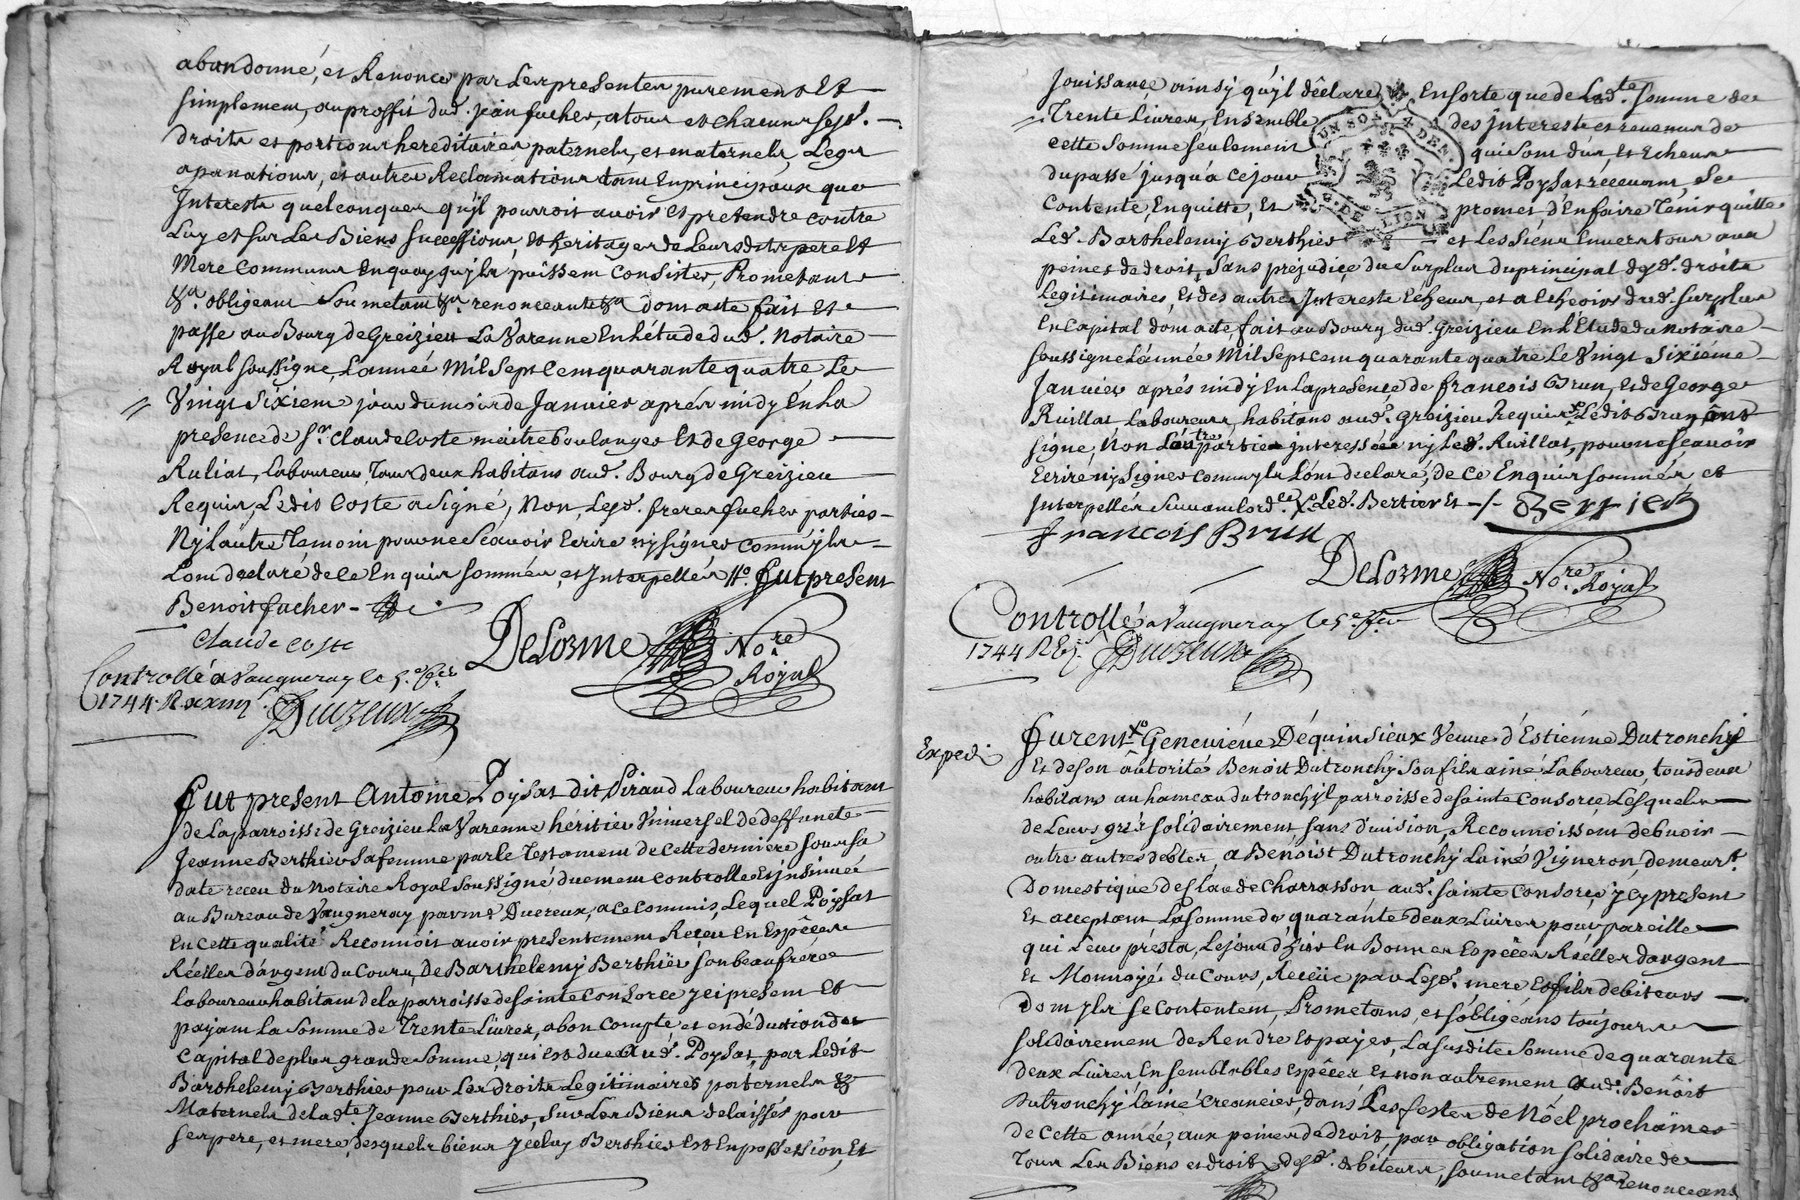 abandonné, et Renonce par Les presentes purement Et
simplement, au proffit dud. Jean fucher, a tous et chacuns ses d.
droits et portions hereditaires paternels, et maternels, Legs
apanations, et autres Reclamations tant En principaux que
Interests quelconques qu'jl pourroit avoir Et pretendre contre
Luy et sur Les Biens successions, Et heritages de Leursdits pere Et
Mere communs En quoy qu'jls puissent Consister, Prometant
&a. obligeant soumetant &a. renonceant &a dont acte fait Et
passé au Bourg de Greizieu La Varenne En L'étude dud. Notaire
Royal soussigné, L'année Mil Sept Cent quarante quatre Le
Vingt Sixiem jour du mois de Janvier aprés midy En La
presence de sr. Claude Coste maître boulanger Et de George
Ruliat, Laboureur, Tous deux habitans aud. Bourg de Greizieu
Requis, Ledit Coste a signé, Non, Lesd. freres fucher parties
Ny L'autre Temoin pour ne Scavoir Ecrire ny signer comm'jls
L'ont declaré de ce Enquis sommés, et Interpellés //o. fut present
Benoit fucher
Claude coste
DeLorme No.re Royal
Controllé a Vaugneray le 5.e fer
1744. R
Duvzeux
fut present Antoine Poysat dit Piraud Laboureur habitant
de La parroisse de Greizieu La Varenne héritier Universel de deffuncte
Jeanne Berthier sa femme par le Testament de cette derniére sour sa
date receu du Notaire Royal soussigné duement controllé Et jnsinué
au Bureau de Vaugneray par me. Duvreux, a ce commis, Lequel Poysat
En cette qualité Reconnoit avoir presentement Receu En Espéces
Réelles d'argent du Cours, De Barthelemy Berthier son beaufrére
Laboureur habitant de la parroisse de sainte Consorce jci present Et
payant La somme de Trente Livres, a bon compte et en déduction du
Capital de plus grande somme, qui est due aud. Poysat, par Ledit
Barthelemy Berthier pour Les droits Legitimaires paternels &
Maternels de lad.te Jeanne Berthier, sur Les Biens delaissés par
ses pere, et mere, desquels biens jceluy Berthier Est En possession, Et
Jouissance ainsy qu'jl déclare, Ensorte que de Lad.te somme de
Trente Livres, Ensemble des jnterests et revenus de
cette somme seulement qui sont dus, Et Echeus
du passé jusqu'à ce jour Ledit Poysat receuant, Se
Contente, En quitte, Et promet d'En faire Tenir quitte
Led. Barthelemy Berthier et Les siens Envers tous aux
peines de droit, Sans préjudice du surplus du principal desd. droits
Legitimaires, Et des autres Jnterests Echeus, et a Echeoir dud. surplus
En capital dont acte fait au Bourg dud. Greizieu En L'Etude du notaire
soussigné L'année Mil Sept Cent quarante quatre Le Vingt Sixiéme
Janvier aprés midy En la presence de françois Brun, Et de George
Ruillat Laboureurs, habitans aud. Greizieu Requis Ledit Brun ont
signé, Non L'autre partie Interessée ny Led. Ruillat, pour ne scavoir
Ecriré ny Signer comm'jls L'ont declaré, de ce Enquis sommés, et
Interpellés suivant L'ord.ce Led. Bertier Et Bertier
françois Brun
DeLorme No.re Royal
Controllé a Vaugneray le 5.e fer
1744 R
Duvzeux
Exped.
furent Geneviéve Déquinsieux Veuve d'Estiénne Dutronchy
Et de son autorité Benoit Dutronchy son fils ainé Laboureur, tous deux
habitans au hameau du tronchyl parroisse de sainte Consorce Lesquels
de Leurs grés solidairement sans division, Reconnoissent debvoir
outre autres debtes, a Benoist Dutronchy L'ainé Vigneron, demeur.t
Domestique de Claude Charrasson aud. sainte consorce, jcy present
Et acceptant La somme de quarante deux Livres pour pareille
qui Leur présta, Lejourd'huy En Bonnes Espéces Réelles d'argent
Et Monnoyé du Cours, Receüe par Lesd. mere Et fils debiteurs
Dont jls se Contentent, Prometans, et s'obligeans toujours
solidairement de Rendre Et payer, La susdite somme de quarante
deux Livres En semblables Espéces Et non autrement Aud. Benoit
Dutronchy L'ainé creancier, dans Les festes de Nöel prochaines
de Cette année, aux peines de droit, par obligation solidaire de
Tous Les Biens et droits desd. debiteurs, soumetant &a renonceans